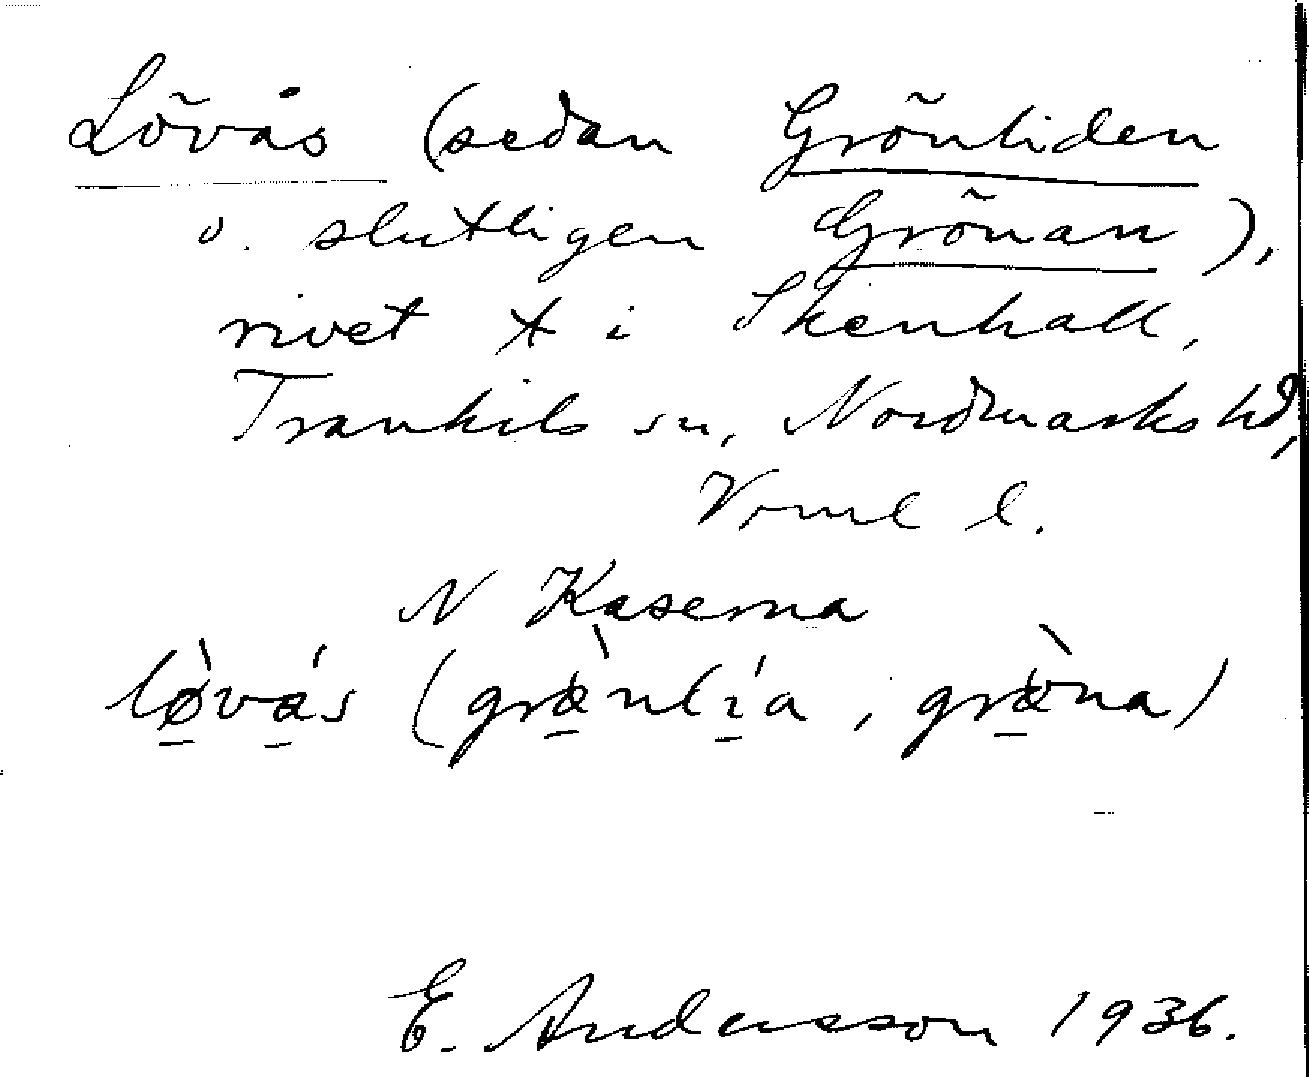 Lövås (sedan Grönliden
o. slutligen Grönan),
rivet t i Skenhall,
Trankils sn, Nordmarks hd,
Vrml l.
N Kaserna
lø̀vás (grǽnlía, grǽna)
E. Andersson 1936.